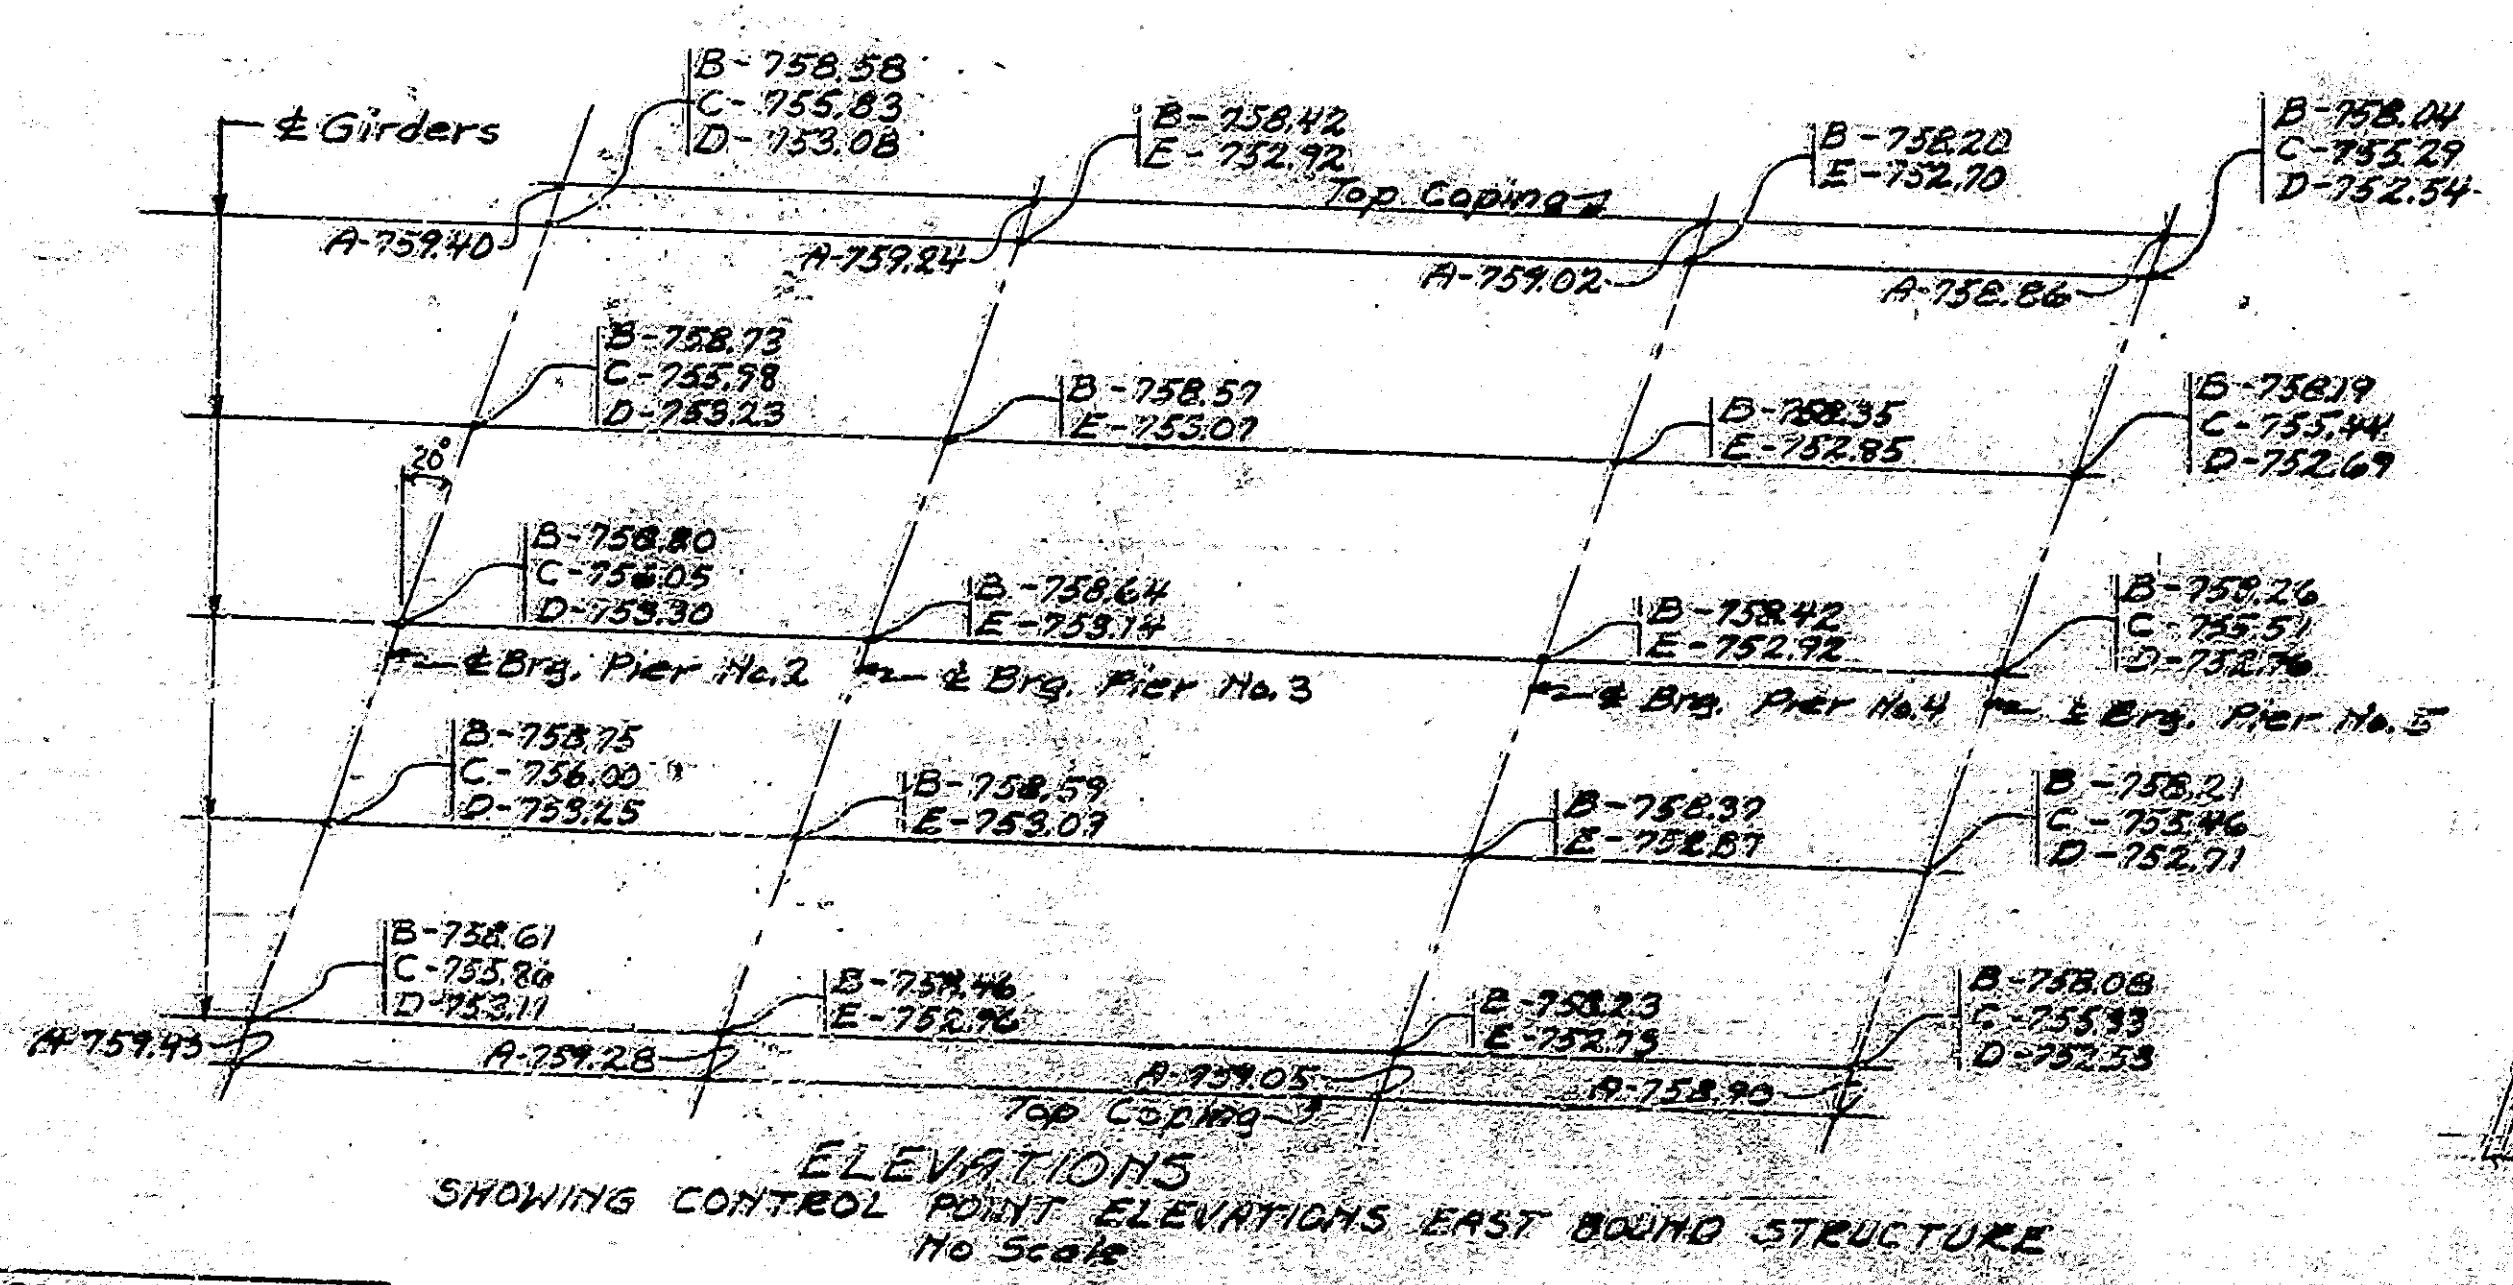 ℄ Girders
B-758.58
C-755.83
D-753.08
B-758.42
E-752.92
B-758.20
E-752.70
B-758.04
C-755.29
D-752.54
Top Coping
A-759.40
A-759.24
A-759.02
A-758.86
B-758.73
C-755.98
D-753.23
B-758.57
E-753.07
B-758.35
E-752.85
B-758.19
C-755.44
D-752.69
20°
B-758.80
C-756.05
D-753.30
B-758.64
E-753.14
B-758.42
E-752.92
B-758.26
C-755.51
D-752.76
℄ Brg. Pier No.2
℄ Brg. Pier No.3
℄ Brg. Pier No.4
℄ Brg. Pier No.5
B-758.75
C-756.00
D-753.25
B-758.59
E-753.09
B-758.37
E-752.87
B-758.21
C-755.46
D-752.71
B-758.61
C-755.86
D-753.11
B-758.46
E-752.96
B-758.23
E-752.73
B-758.08
C-755.33
D-752.53
A-759.43
A-759.28
A-759.05
A-758.90
Top Coping
ELEVATIONS
SHOWING CONTROL POINT ELEVATIONS EAST BOUND STRUCTURE
No Scale